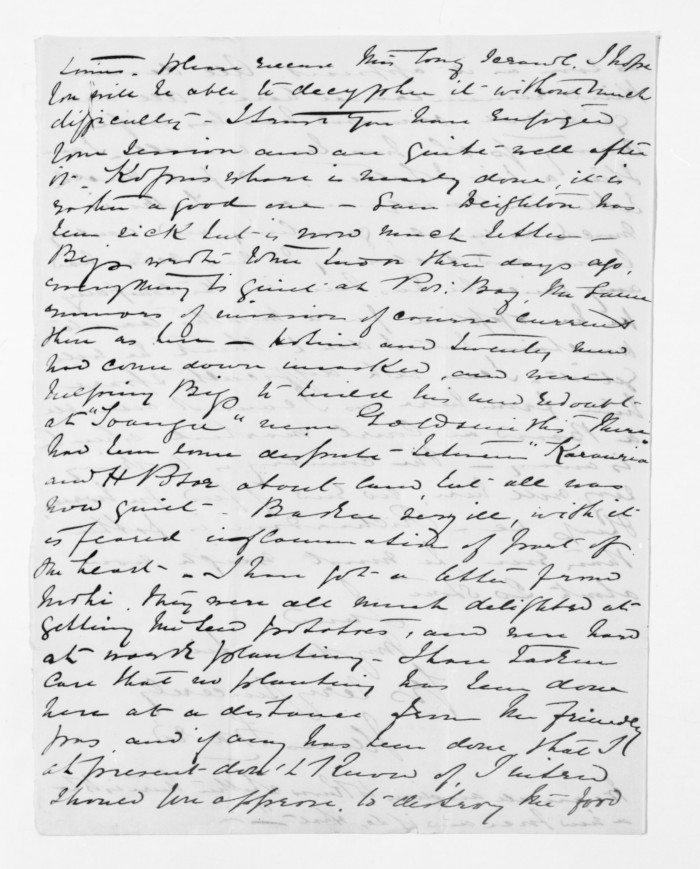 times. please excuse this long scrawl. I hope
you will be able to decypher it without much
difficulty - I trust you have enjoyed
your Session and are quite well after
it. Kopu's whare is nearly done, it is
rather a good one - Sam Deighton has
been sick but is now much better -
Biggs wrote some two or three days ago,
everything is quiet at Pov: Bay, the same
rumors of invasion of course current
there as here - and twenty men
had come down unasked, and were
helping Biggs to build his new redoubt
at " " near Goldsmiths, There
had been some dispute between "Karauria"
and H about land, but all was
now quiet - Barker very ill, with it
is feared inflammation of part of
the heart - I have got a letter from
Mohi. They were all much delighted at
getting the seed potatoes, and were hard
at work planting - I have taken
care that no planting has been done
here at a distance from the friendly
pas, and if any has been done, that I
at present don't know of, I intend
should you approve, to destroy the food